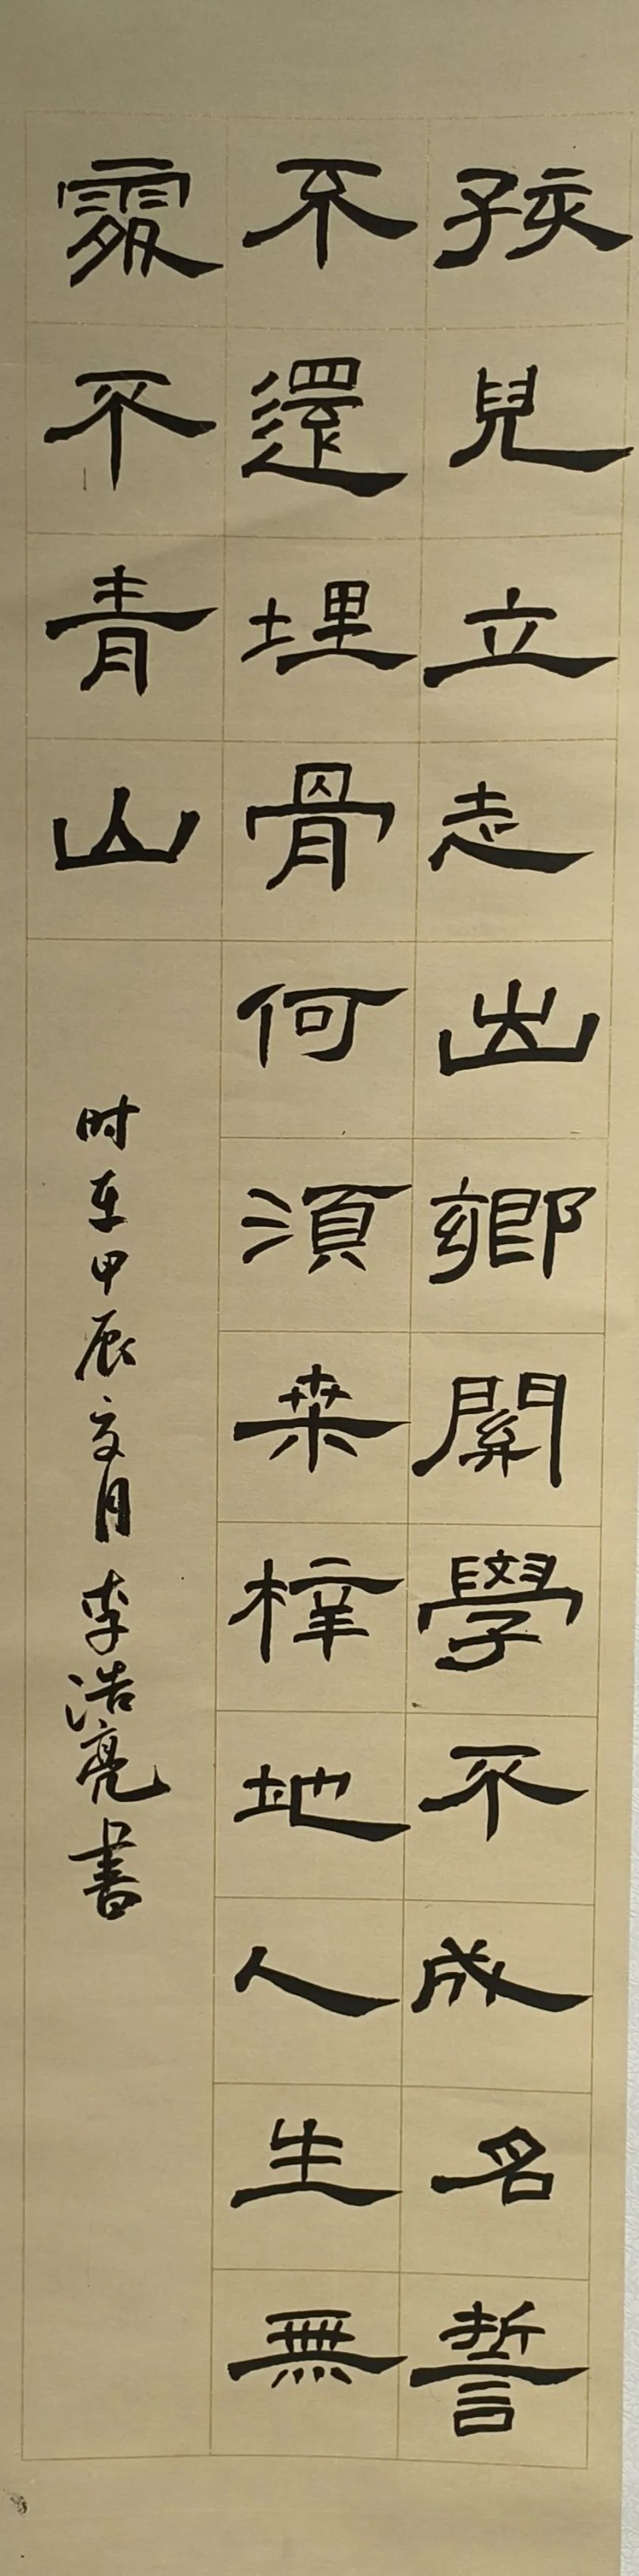 孩兒立志出鄉關學不成名誓
不還埋骨何須桒梓地人生無
處不青山
时在甲辰文月李浩亮書